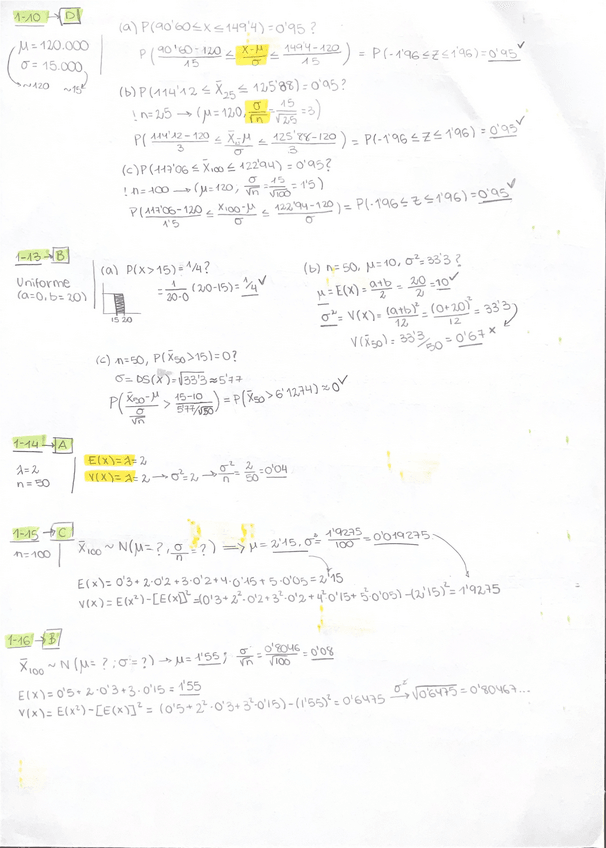 1-10 → D
μ = 120.000
σ = 15.000
~120 ~15
(a) P(90'60 ≤ x ≤ 149'4) = 0'95 ?
P(90'60-120/15 ≤ x-μ/σ ≤ 149'4-120/15) = P(-1'96 ≤ z ≤ 1'96) = 0'95 ✓
(b) P(114'12 ≤ x̄25 ≤ 125'88) = 0'95?
! n=25 → (μ=120, σ/√n = 15/√25 = 3)
P(114'12-120/3 ≤ x̄-μ/σ ≤ 125'88-120/3) = P(-1'96 ≤ z ≤ 1'96) = 0'95 ✓
(c) P(117'06 ≤ x̄100 ≤ 122'94) = 0'95?
! n=100 → (μ=120, σ/√n = 15/√100 = 1'5)
P(117'06-120/1'5 ≤ x100-μ/σ ≤ 122'94-120/σ) = P(-1'96 ≤ z ≤ 1'96) = 0'95 ✓
1-13 → B
Uniforme
(a=0, b=20)
(a) P(x>15) = 1/4?
= 1/20-0 (20-15) = 1/4 ✓
15 20
(b) n=50, μ=10, σ²=33'3 ?
μ = E(x) = a+b/2 = 20/2 = 10 ✓
σ² = V(x) = (a+b)²/12 = (0+20)²/12 = 33'3
V(x̄50) = 33'3/50 = 0'67 x
(c) n=50, P(x̄50>15) = 0?
σ = DS(x) = √33'3 ≈ 5'77
P(x̄50-μ/σ/√n > 15-10/5'77/√50) = P(x̄50 > 6'1274) ≈ 0 ✓
1-14 → A
λ=2
n=50
E(x) = λ = 2
V(x) = λ = 2 → σ²=2 → σ²/n = 2/50 = 0'04
1-15 → C
n=100
x̄100 ~ N(μ=?, σ/n=?) ⟹ μ = 2'15, σ² = 1'9275/100 = 0'019275
E(x) = 0'3+2·0'2+3·0'2+4·0'15+5·0'05 = 2'15
V(x) = E(x²)-[E(x)]² = (0'3+2²·0'2+3²·0'2+4²·0'15+5²·0'05)-(2'15)² = 1'9275
1-16 → B
x̄100 ~ N(μ=?; σ=?) → μ = 1'55; σ/√n = 0'8046/√100 = 0'08
E(x) = 0'5+2·0'3+3·0'15 = 1'55
V(x) = E(x²)-[E(x)]² = (0'5+2²·0'3+3²·0'15)-(1'55)² = 0'6475 σ→ √0'6475 = 0'80467...